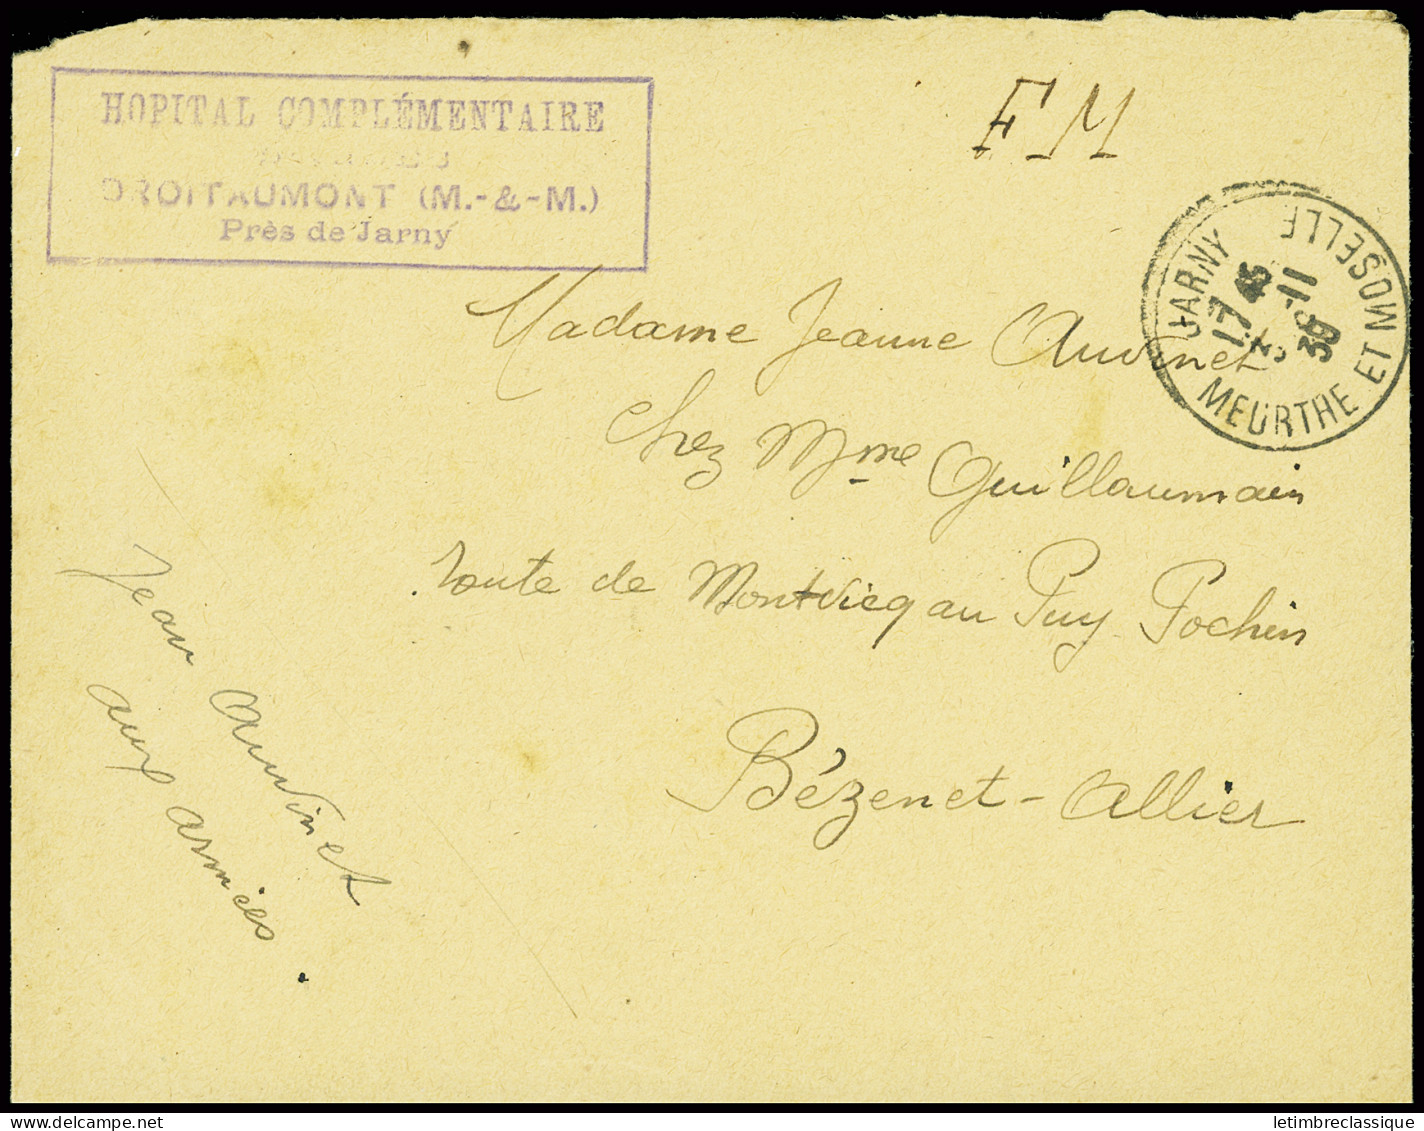 HOPITAL COMPLÉMENTAIRE
DROITAUMONT (M.-&-M.)
Près de Jarny
F M
JARNY
17 45
11
39
MEURTHE ET MOSELLE
Madame Jeanne Auvinet
chez Mme Guillaumain
route de Montvicq au Puy Pochin
Bézenet - Allier
Jean Auvinet
aux armées.
delcampe.net
letimbreclassique